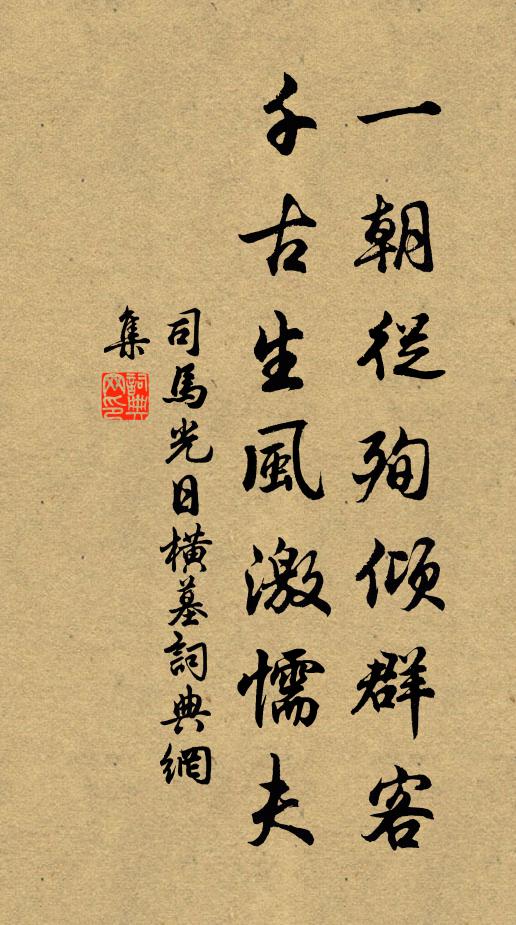 一朝從殉傾群客
千古生風激懦夫
司馬光日橫墓詞典網
集
詞典網印